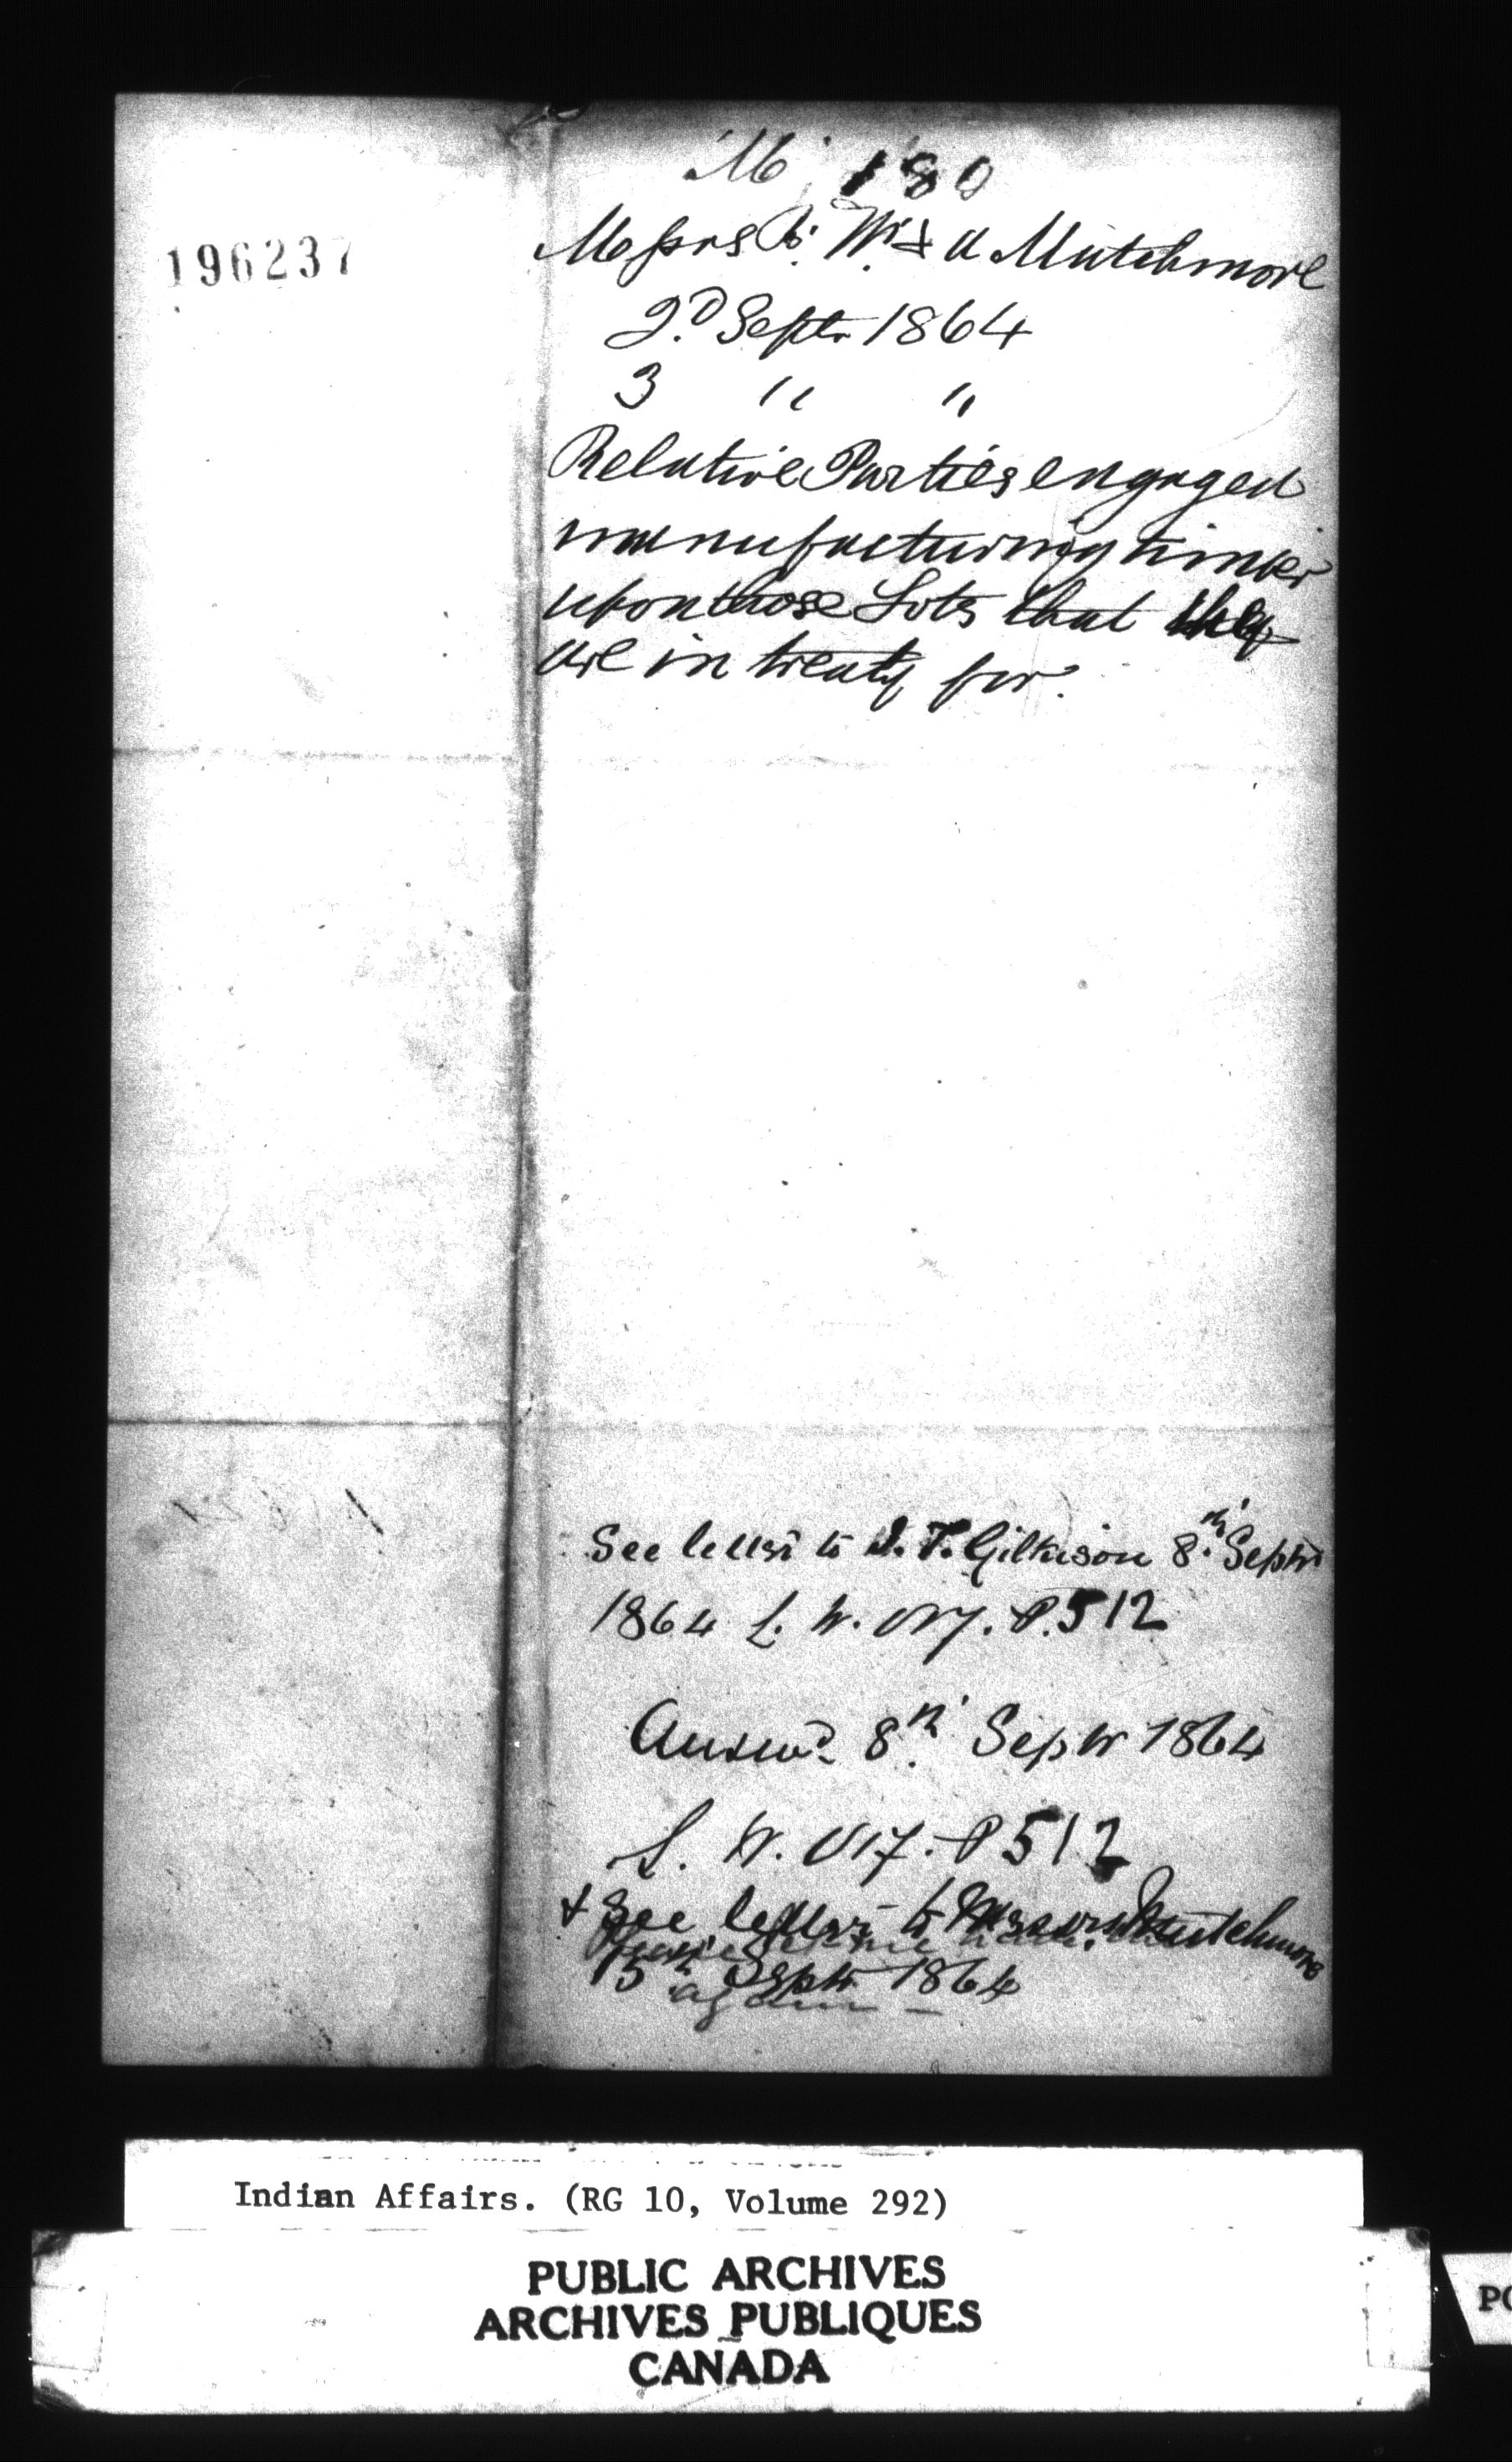 196237
M 180
Messrs R. W. & A Mutchmore
2.D Septr 1864
3 " "
Relative Parties engaged
manufacturing timber
upon those Lots that they
are in treaty for.
See letter to J. T. Gilkison 8.th Septr
1864 L. W. No 7. P. 512
Answd 8th Septr 1864
L. W. No 7. P 512
& See letter to Messrs Mutchmore
15th Septr 1864
again —
Indian Affairs. (RG 10, Volume 292)
PUBLIC ARCHIVES
ARCHIVES PUBLIQUES
CANADA